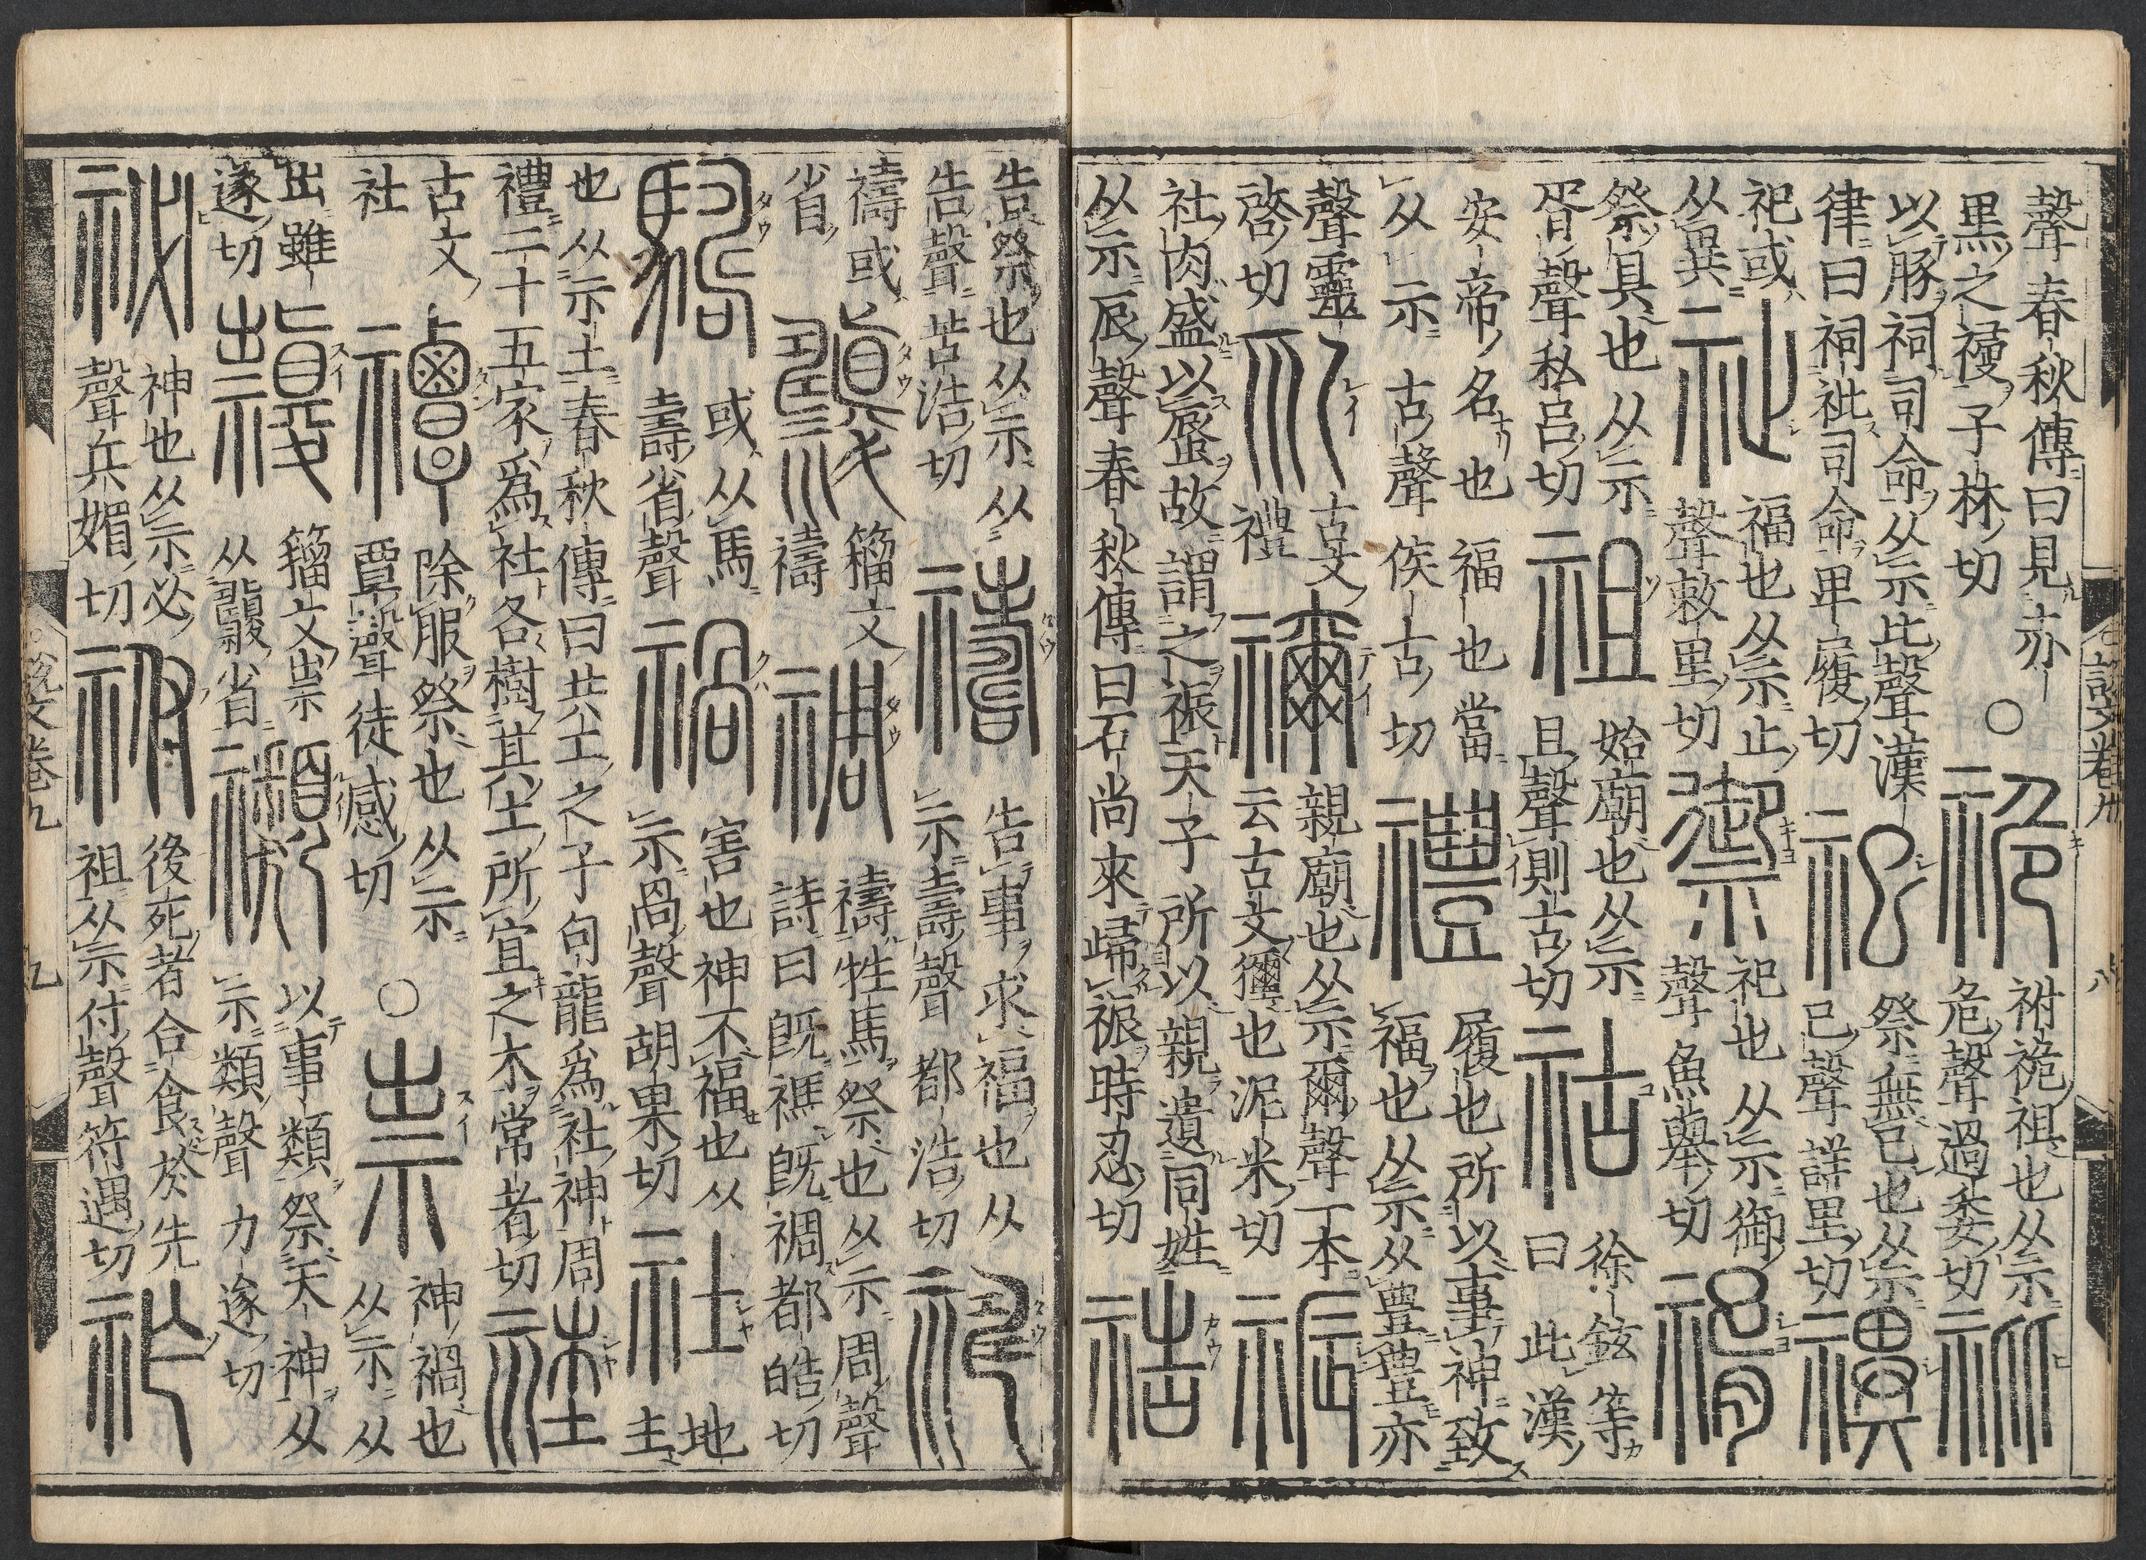 聲春秋傳曰見赤
黑之祲子林切
○
祪
祔祪祖也从示
危聲過委切
䃾
以豚祠司命从示比聲漢
律曰祠䃾司命卑履切
祀
祭無巳也从示
巳聲詳里切
禩
祀或
从異
祉
福也从示止
聲敕里切
禦
祀也从示御
聲魚舉切
祭具也从示
胥聲私呂切
祖
始廟也从示
且聲側古切
祜
徐鉉等
曰此漢
安帝名也福也當
从示古聲侯古切
禮
履也所以事神致
福也从示从豊豊亦
聲靈
啓切
古文
禮
禰
親廟也从示爾聲一本
云古文也泥米切
祳
社肉盛以蜃故謂之祳天子所以親遺同姓
从示辰聲春秋傳曰石尚來歸祳時忍切
祰
說文卷九
八
告祭也从示从
告聲苦浩切
禱
告事求福也从
示壽聲都浩切
禱或
省
籀文
禱
禂
禱牲馬祭也从示周聲
詩曰既禡既禂都皓切
或从馬
壽省聲
禍
害也神不福也从
示咼聲胡果切
社
地
主
也从示土春秋傳曰共工之子句龍爲社神周
禮二十五家爲社各樹其土所宜之木常者切
古文
社
禫
除服祭也从示
覃聲徒感切
○
祟
神禍也
从示从
出雖
遂切
籀文祟
从省
禷
以事類祭天神从
示類聲力遂切
祕
神也从示必
聲兵媚切
祔
後死者合食於先
祖从示付聲符遇切
祚
說文卷九
九